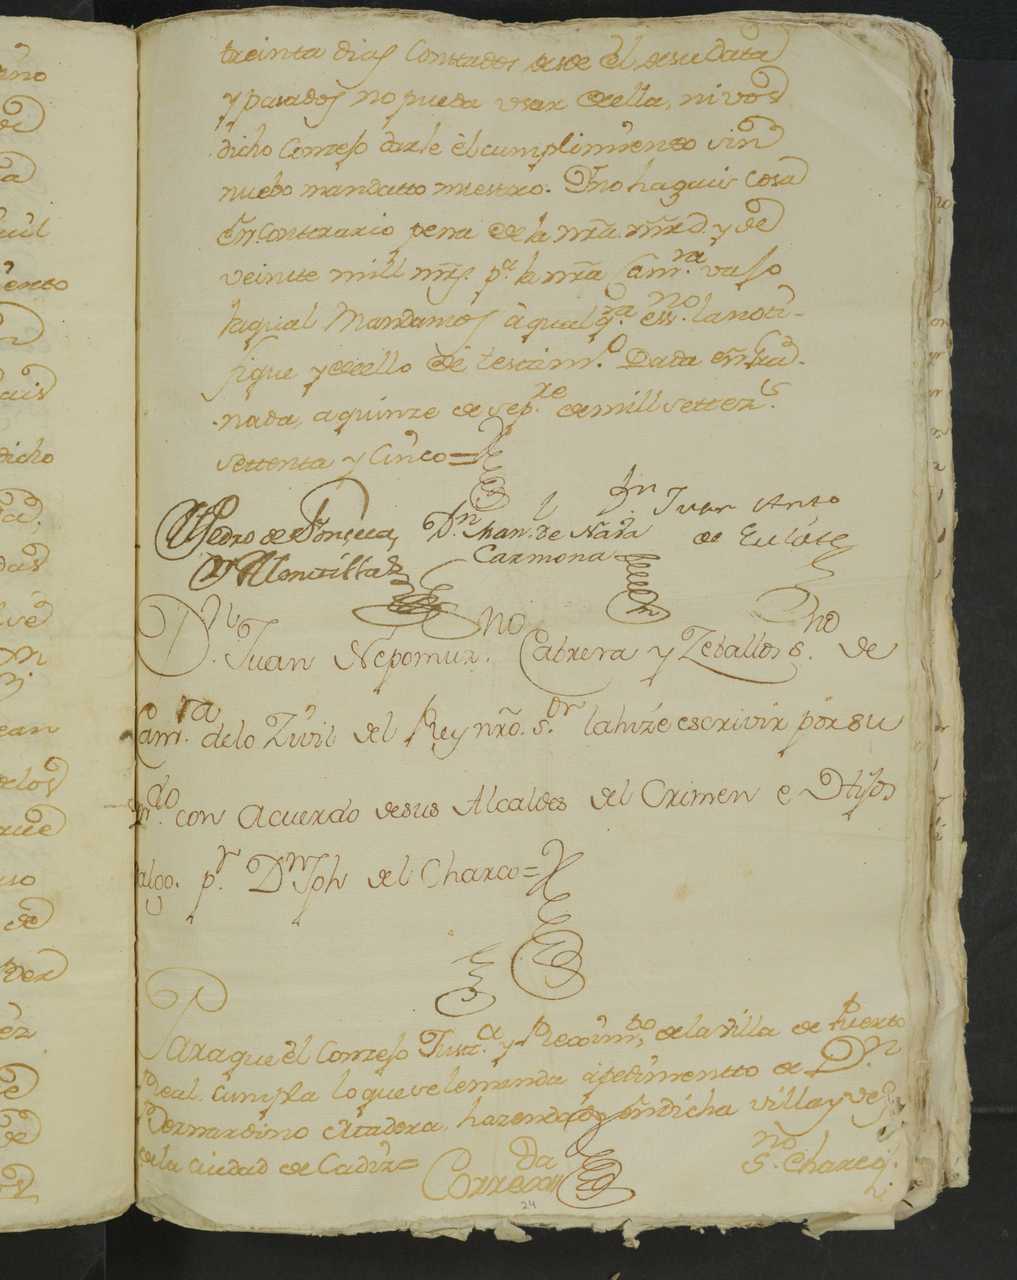 treinta dias Contados desde el de su Data
y pasados no pueda usar de ella, ni vos
dicho Conzejo darle el cumplimiento sin
nuebo mandatto nuestro. Y no hagais cosa
en Contrario pena de la nrã. mrd. y de
veinte mill mrs. pª. la nrã Camrª. vajo
la qual Mandamos â qualqª. essno. la noti-
fique y de ello de testimº. Dada en Gra-
nada, a quinze de sepre. de mill settezs.
settenta y Cinco =
Pedro de Fonseca, Dn. Jhan. de Nara Dn. Juan Anto
y Montilla Carmona de
Dn. Juan Nepomuzno. Cabrera y Zeballos sno. de
Camra. de lo Zivil del Rey nrõ. sor. la hize escrivir por su
mdo. con Acuerdo de sus Alcaldes del Crimen e Hijos
dalgo. pr. Dn Jph del Charco =
Para que el Conzejo Justª. y Reximto. de la villa de Puerto
Real Cumpla lo que se le manda â pedimentto de Dn.
Bernardino de Tadora, hazendado en dicha villa y vezº.
de la Ciudad de Cadiz =
Correxda
sno. Charco
24